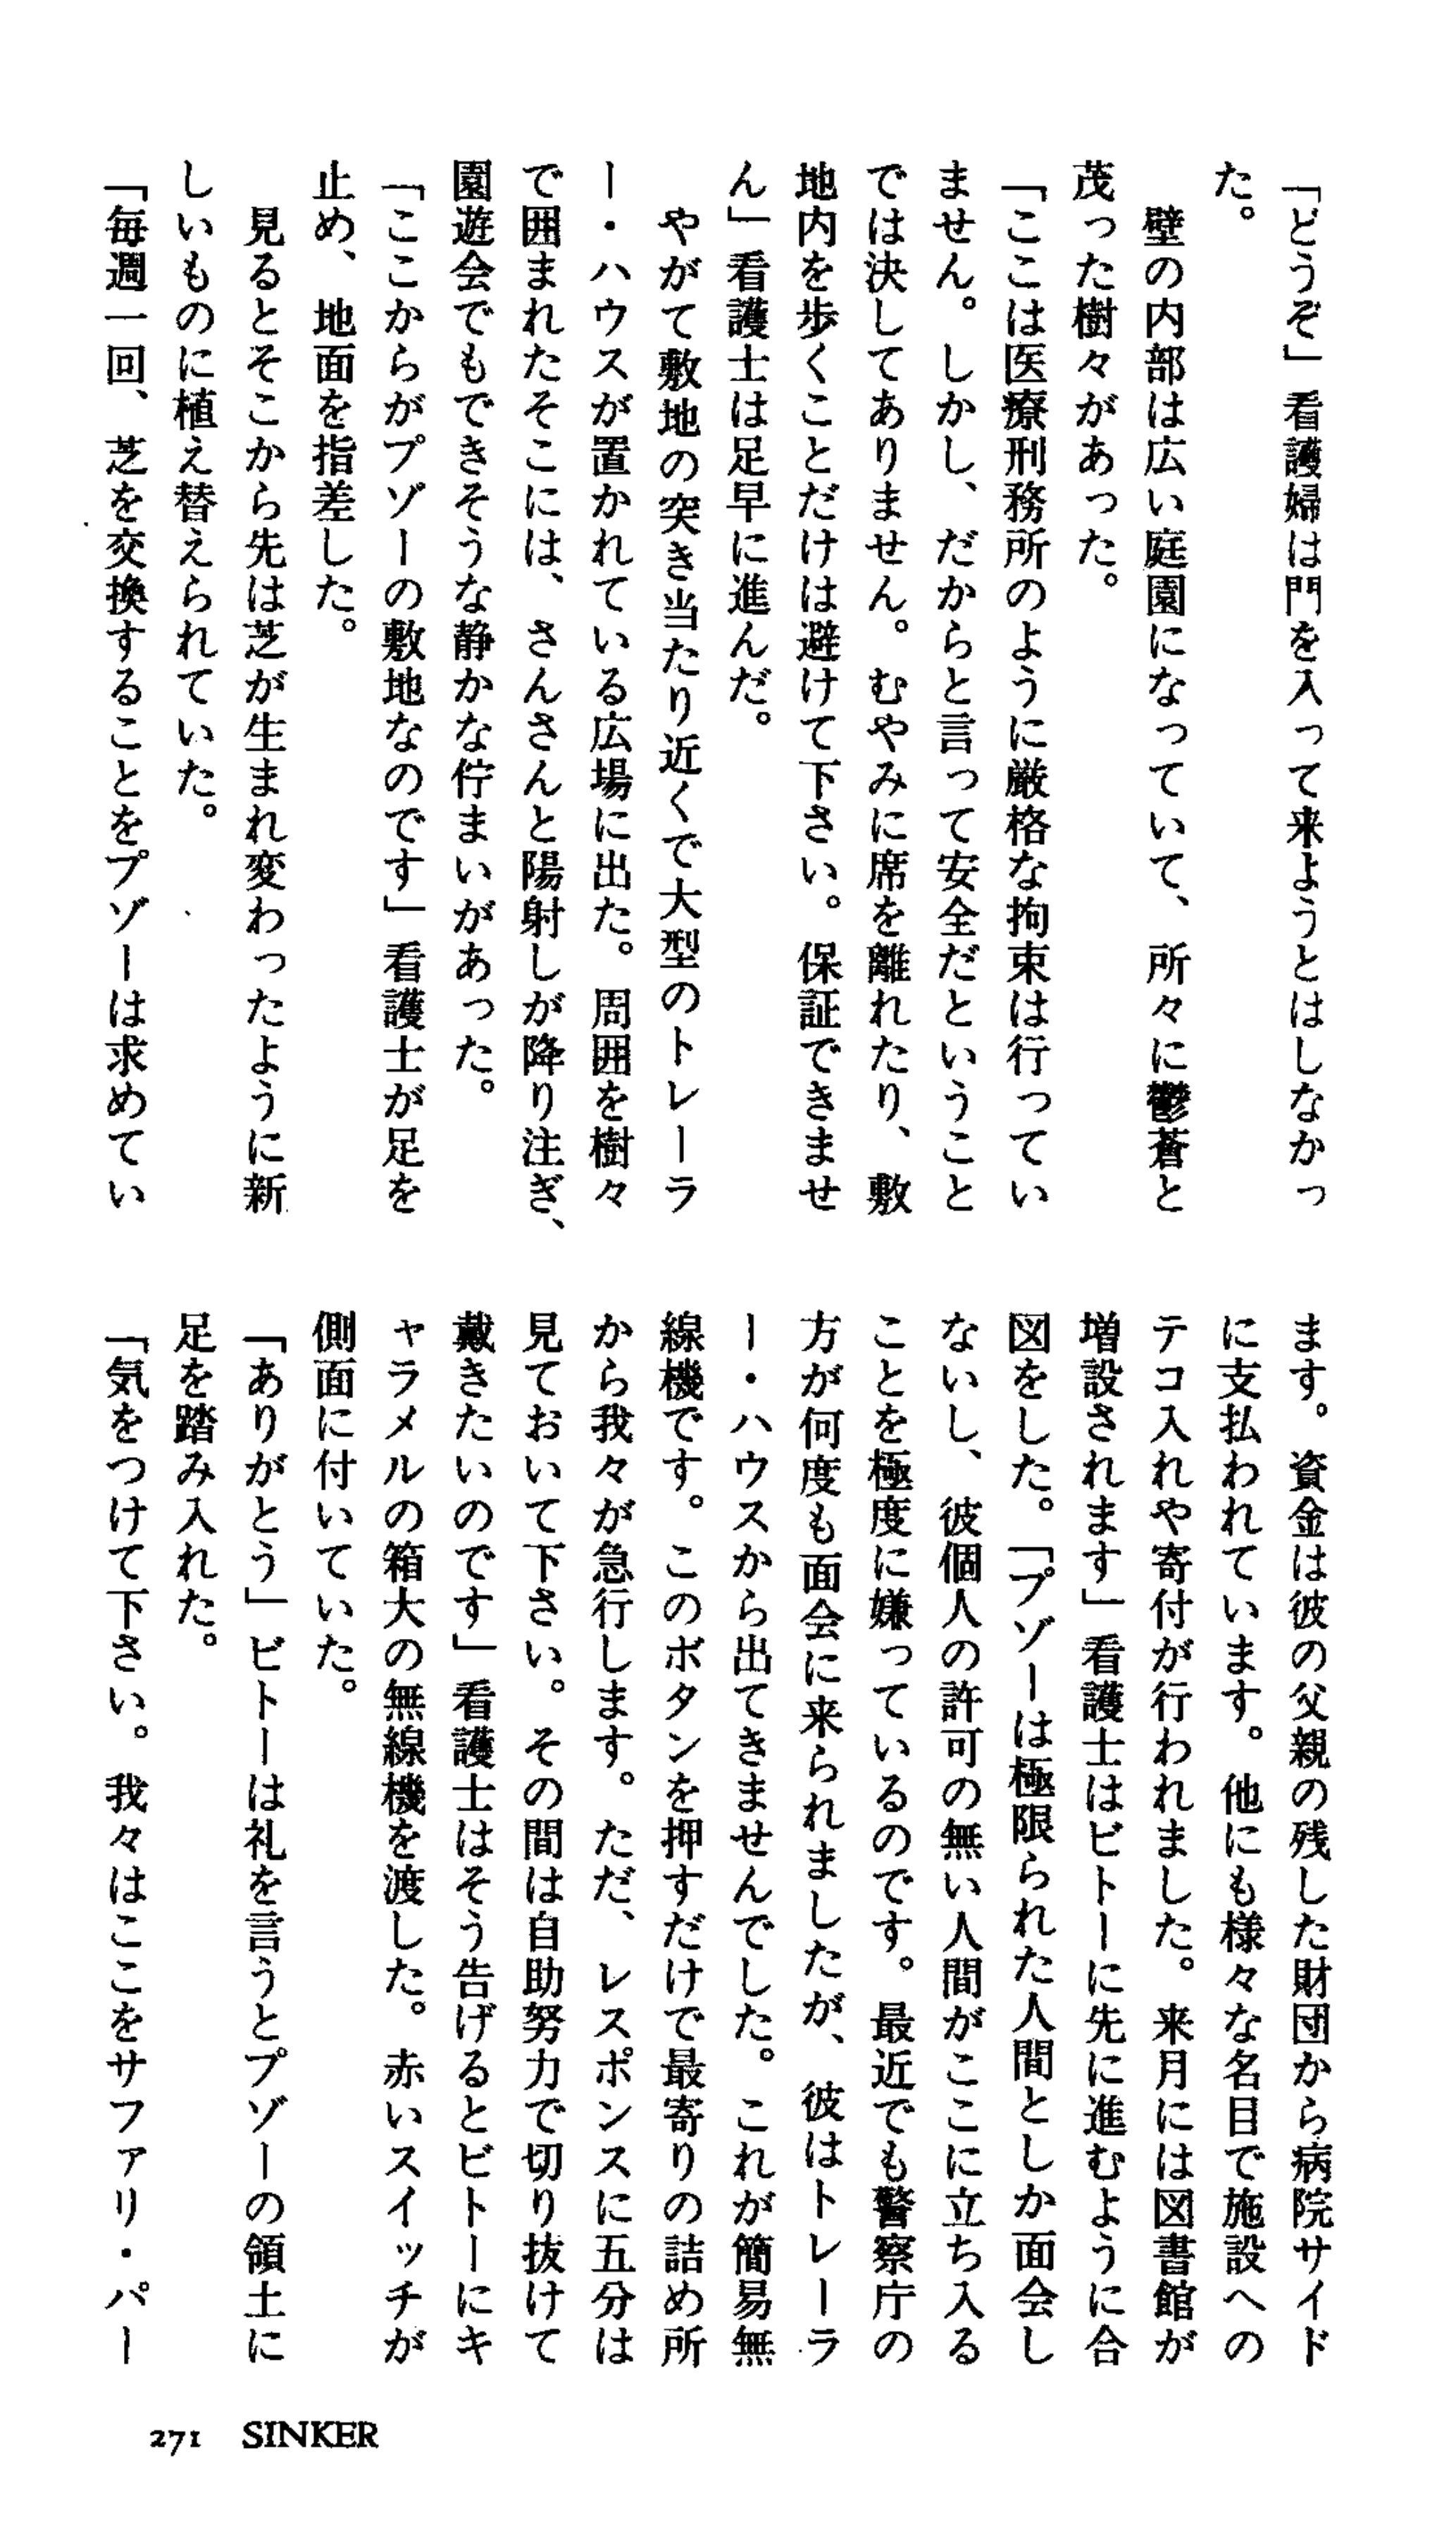 「どうぞ」看護婦は門を入って来ようとはしなかっ
た。
　壁の内部は広い庭園になっていて、所々に鬱蒼と
茂った樹々があった。
「ここは医療刑務所のように厳格な拘束は行ってい
ません。しかし、だからと言って安全だということ
では決してありません。むやみに席を離れたり、敷
地内を歩くことだけは避けて下さい。保証できませ
ん」看護士は足早に進んだ。
　やがて敷地の突き当たり近くで大型のトレーラ
ー・ハウスが置かれている広場に出た。周囲を樹々
で囲まれたそこには、さんさんと陽射しが降り注ぎ、
園遊会でもできそうな静かな佇まいがあった。
「ここからがプゾーの敷地なのです」看護士が足を
止め、地面を指差した。
　見るとそこから先は芝が生まれ変わったように新
しいものに植え替えられていた。
「毎週一回、芝を交換することをプゾーは求めてい
ます。資金は彼の父親の残した財団から病院サイド
に支払われています。他にも様々な名目で施設への
テコ入れや寄付が行われました。来月には図書館が
増設されます」看護士はビトーに先に進むように合
図をした。「プゾーは極限られた人間としか面会し
ないし、彼個人の許可の無い人間がここに立ち入る
ことを極度に嫌っているのです。最近でも警察庁の
方が何度も面会に来られましたが、彼はトレーラ
ー・ハウスから出てきませんでした。これが簡易無
線機です。このボタンを押すだけで最寄りの詰め所
から我々が急行します。ただ、レスポンスに五分は
見ておいて下さい。その間は自助努力で切り抜けて
戴きたいのです」看護士はそう告げるとビトーにキ
ャラメルの箱大の無線機を渡した。赤いスイッチが
側面に付いていた。
「ありがとう」ビトーは礼を言うとプゾーの領土に
足を踏み入れた。
「気をつけて下さい。我々はここをサファリ・パー
271 SINKER